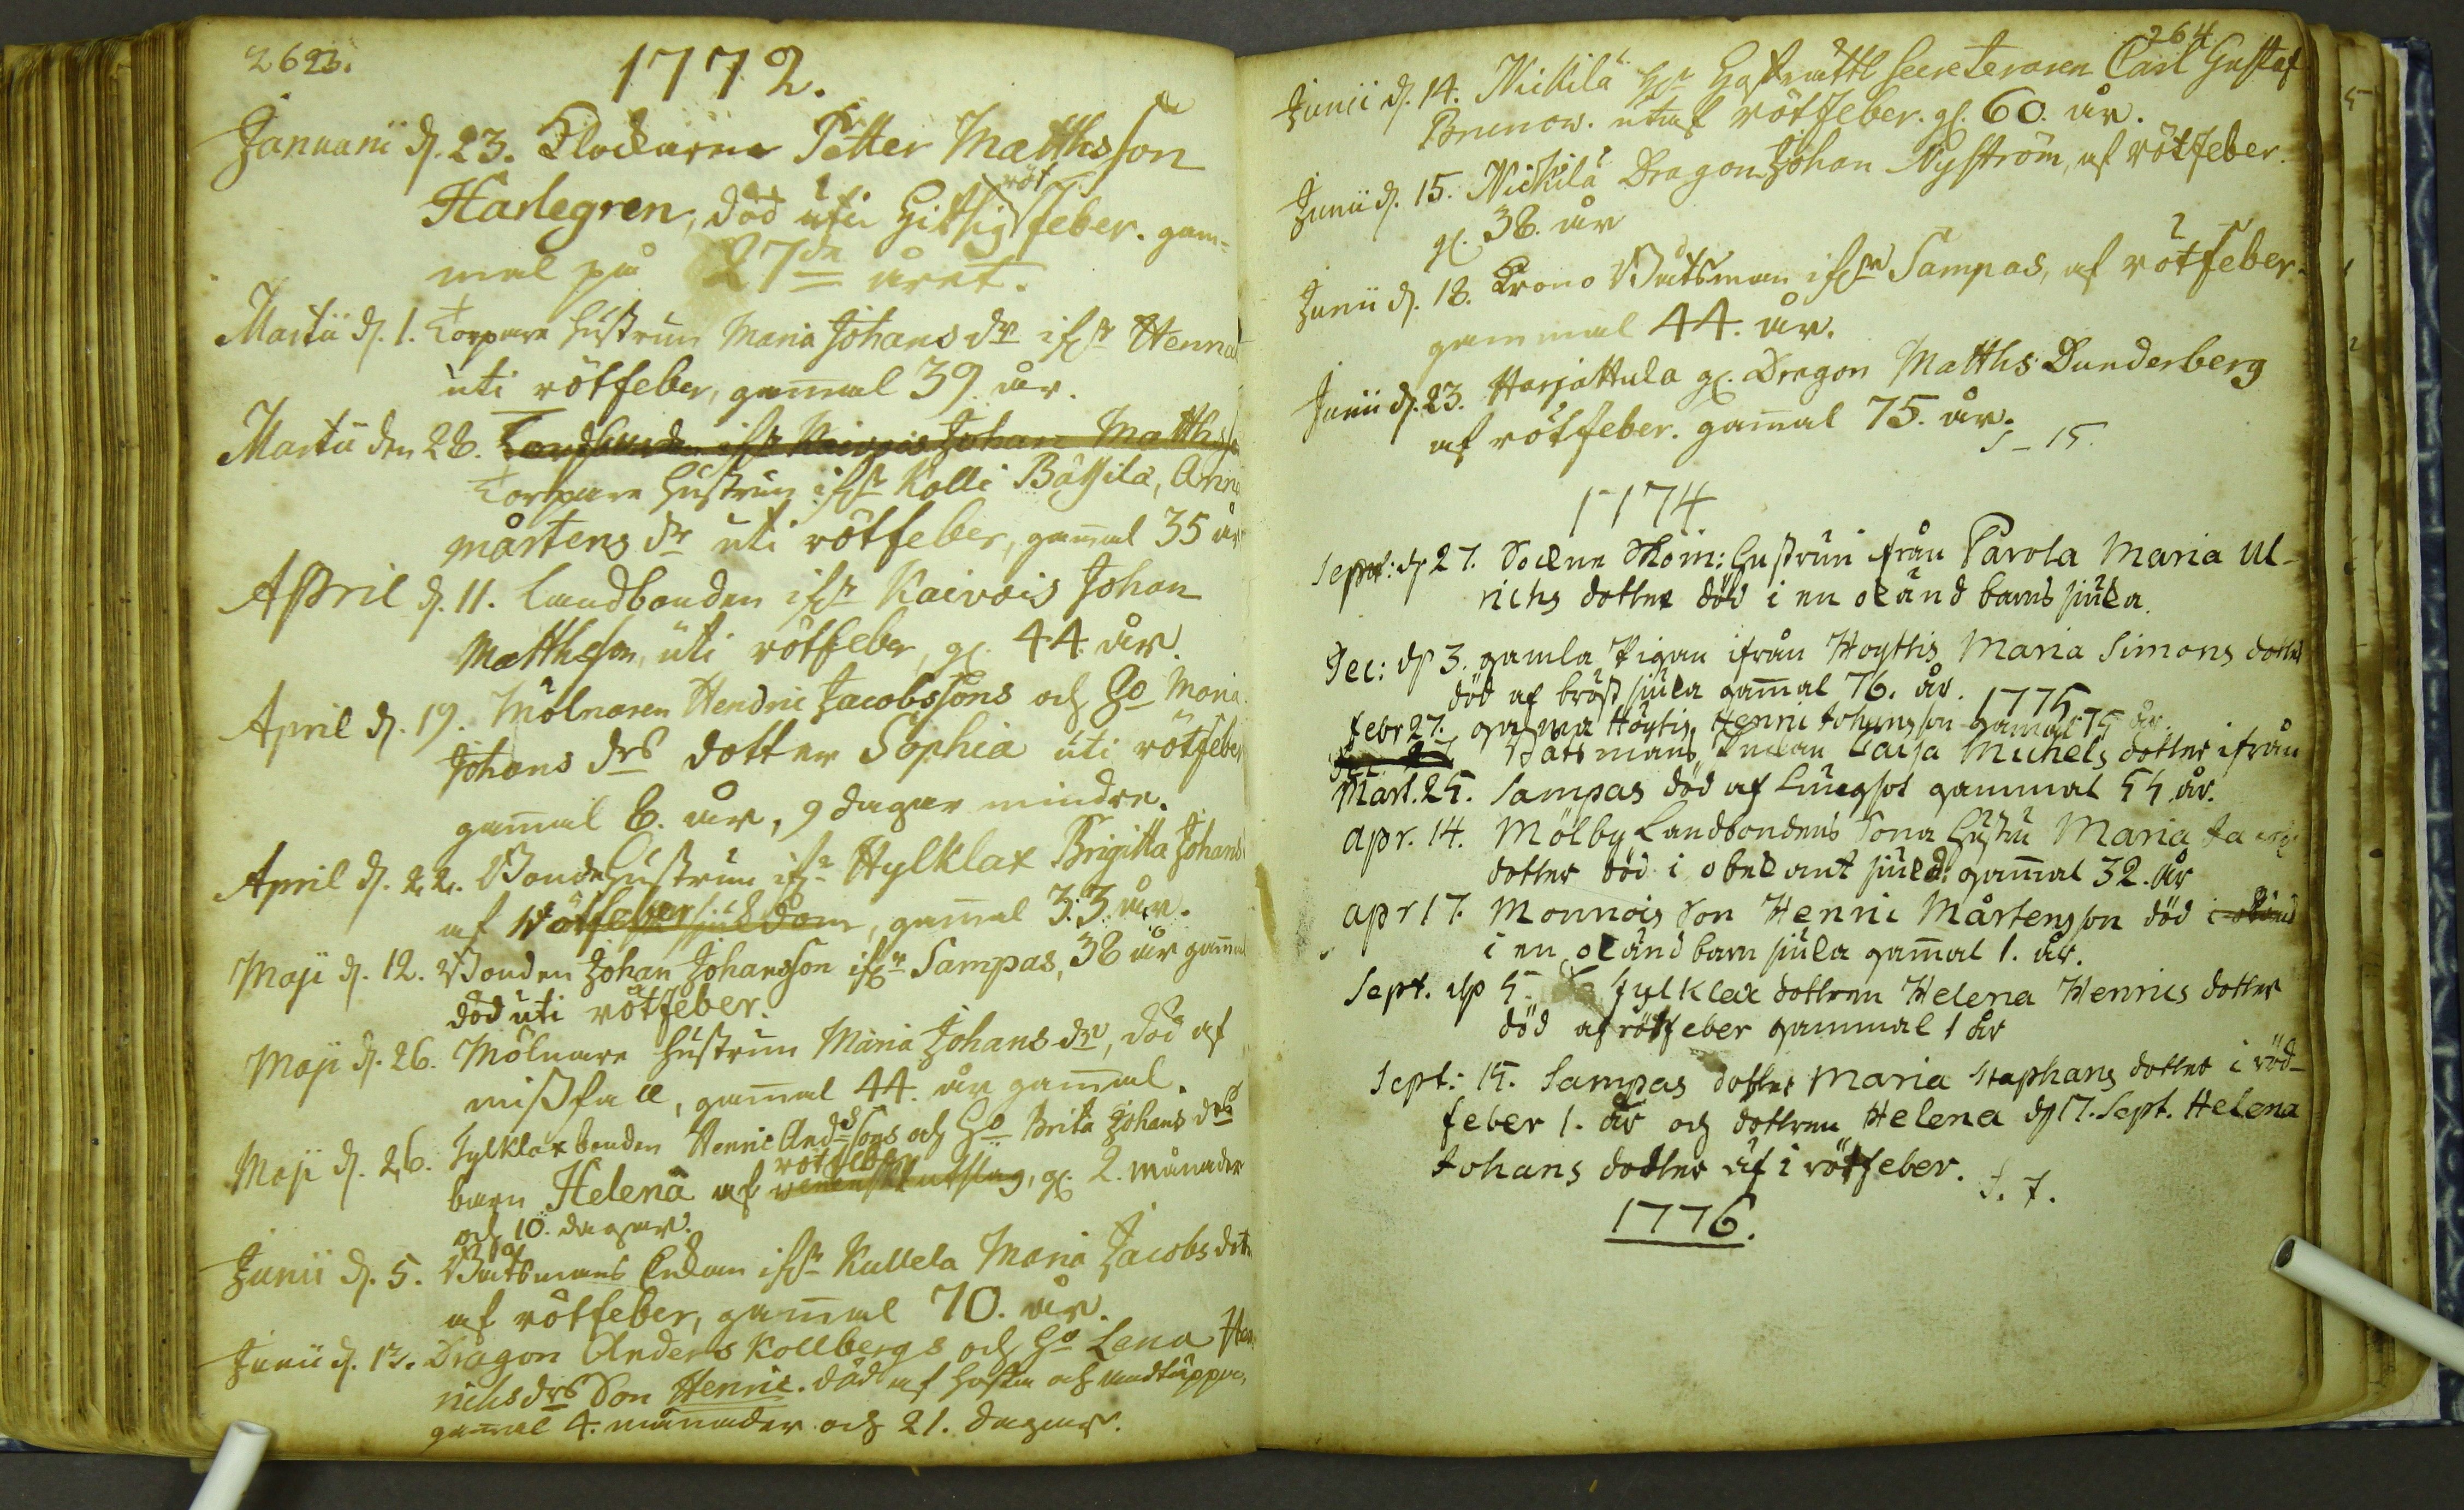 263.
1772.
Januarii d. 23. Klockaren Petter Matthsson
Harlegren, död uti hitsig röt feber. gam-
mal på 27de året.
Martii d. 1. Torpare hustrun Maria Johans dr ifr Henna
uti rötfeber, gamal 39. år.
Martii den 28. Landbonden ifr Kaivois Johan Matthsson
Torpare hustrun ifr Kolli Båtsila, Anna
Mårtens dr uti rötfeber, gamal 35 år
April d. 11. Landbonden ifr Kaivois Johan
Matthsson, uti rötfeber, gl. 44. år.
April d. 19. Mölnaren Hendric Jacobssons och Ho Maria
Johans drs dotter Sophia uti rötfeber
gamal 6. år, 9 dagar mindre.
April d. 22. Bonde Hustrun ifr Hylklax Brigitta Johans
af rötfeber sjukdom, gamal 33. år.
Maji d. 12. Bonden Johan Johansson ifr Sampas, 38 år gamal
död uti rötfeber.
Maji d. 26. Mölnare hustrun Maria Johans dr, död af
missfall, gamal 44. år gamal.
Maji d. 26. Jylklax bonden Henric Andssons och Ho Brita Johans drs
barn Helena af rötfeber utslag, gl. 2. månader
och 10. dagar.
Junii d. 5. Båtsmans Enkan ifr Kullela Maria Jacobs dotr
af rötfeber, gamal 70. år.
Junii d. 12. Dragon Anders Kollbergs och Ho Lena Hen
richs drs Son Henric. död af hosta och andtäppa,
gamal 4. månader och 21. dagar.
264
Junii d. 14. Nickilä Hr Hofrätts Secreteraren Carl Gustaf
Brunow. utaf rötfeber. gl. 60. år.
Junii d. 15. Nickilä Dragon Johan Nyström, af rötfeber.
gl. 38. år
Junii d. 18. Krono Båtsman ifr Sampas, af rötfeber.
gammal 44. år.
Junii d. 23. Harjattula gl. Dragon Matths Dunderberg
af rötfeber. gamal 75. år.
S - 15.
1774
Sept: d 27. Sockne hustrun från Parola Maria Ul-
richs dotter död i en okänd barns siuka.
Dec: d 3. gamla Pigan ifrån Höyttis Maria Simons dotter
död af bröst siuka gamal 76. år.
1775
febr 27. gamla Höytis Henric Johansson gamal 75 år.
Båtsmans Enkan Caisa Michels dotter ifrån
Mart. 25. Sampas död af Lungsot gammal 54 år.
apr. 14. Mölby Landbondens Sona Hustru Maria Ja
dotter död i obekant siukd. gamal 32. år
apr 17. Monnois Son Henric Mårtensson död i okänd
i en okänd barn siuka gamal 1. år.
Sept. d 5. Jylklax dottren Helena Henrics dotter
död af rötfeber gammal 1 år
Sept: 15. Sampas dotter Maria Staphans dotter i röd-
feber 1. år och dottren Helena d 17. Sept. Helena
Johans dotter af i rötfeber.
S. 7.
1776.